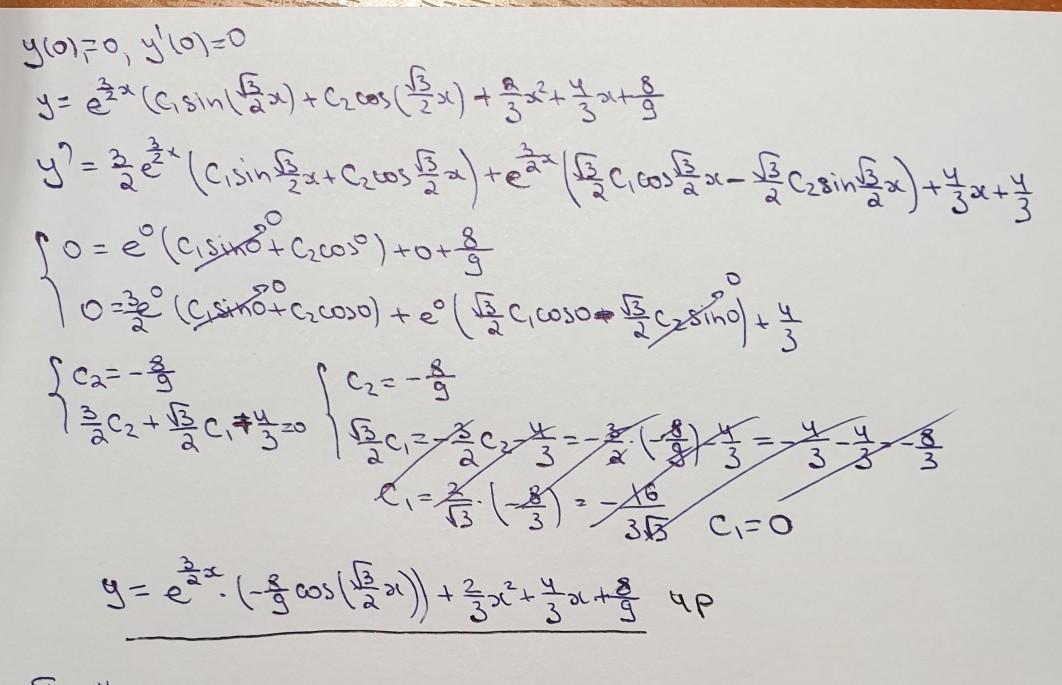 y(0)=0, y'(0)=0
y = e^{3/2 x} (C₁sin(√3/2 x) + C₂cos(√3/2 x) + 2/3 x² + 4/3 x + 8/9
y' = 3/2 e^{3/2 x} (C₁sin √3/2 x + C₂cos √3/2 x) + e^{3/2 x} (√3/2 C₁cos √3/2 x − √3/2 C₂sin √3/2 x) + 4/3 x + 4/3
{ 0 = e⁰ (C₁sin0 → 0 + C₂cos0) + 0 + 8/9
0 = 3/2 e⁰ (C₁sin0 → 0 + C₂cos0) + e⁰ (√3/2 C₁cos0 − √3/2 C₂sin0 → 0) + 4/3
{ C₂ = −8/9 { C₂ = −8/9
3/2 C₂ + √3/2 C₁ + 4/3 = 0 √3/2 C₁ = −3/2 C₂ − 4/3 = −3/2 · (−8/9) − 4/3 = −4/3 − 4/3 = −8/3
C₁ = 2/√3 · (−8/3) = −16/3√3 C₁ = 0
y = e^{3/2 x} · (−8/9 cos(√3/2 x)) + 2/3 x² + 4/3 x + 8/9 чр